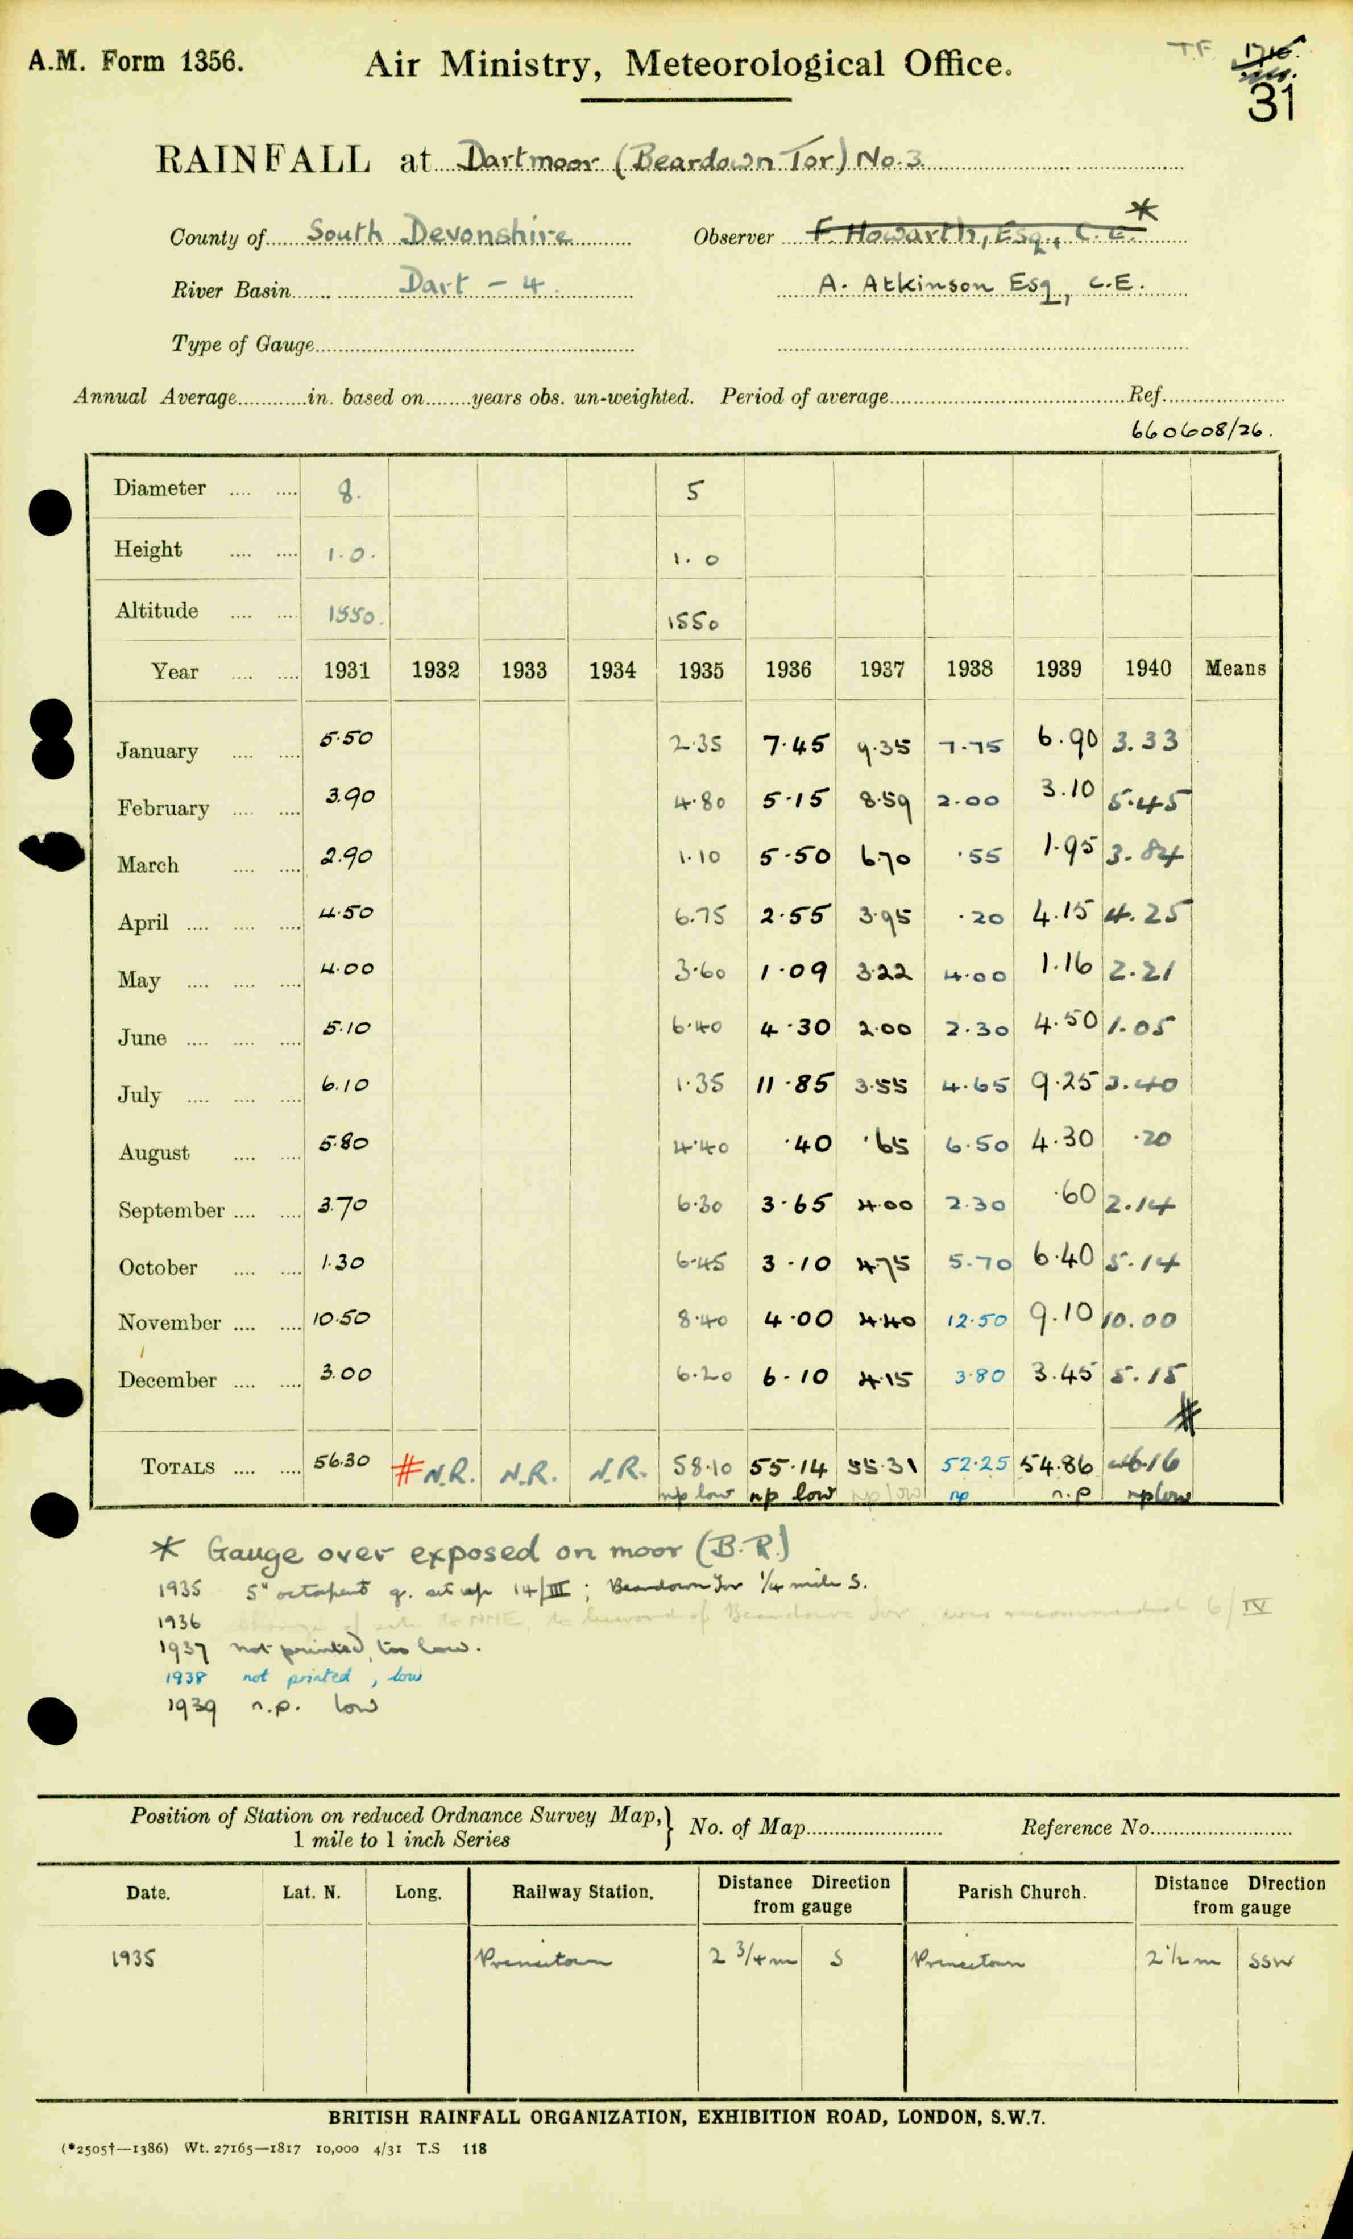 A.M. Form 1356.
Air Ministry, Meteorological Office.
T.F.
31
RAINFALL at Dartmoor (Beardown Tor) No.3
County of South Devonshire Observer F. Howarth, Esq., C.E. *
River Basin Dart - 4. A. Atkinson Esq., C.E.
Type of Gauge
Annual Average in. based on years obs. un-weighted. Period of average Ref.
660608/26.
Diameter 8. 5
Height 1.0. 1.0
Altitude 1550. 1550
Year 1931 1932 1933 1934 1935 1936 1937 1938 1939 1940 Means
January 5.50 2.35 7.45 9.35 7.75 6.90 3.33
February 3.90 4.80 5.15 8.59 2.00 3.10 5.45
March 2.90 1.10 5.50 6.70 .55 1.95 3.84
April 4.50 6.75 2.55 3.95 .20 4.15 4.25
May 4.00 3.60 1.09 3.22 4.00 1.16 2.21
June 5.10 6.40 4.30 2.00 2.30 4.50 1.05
July 6.10 1.35 11.85 3.55 4.65 9.25 3.40
August 5.80 4.40 .40 .65 6.50 4.30 .20
September 3.70 6.30 3.65 4.00 2.30 .60 2.14
October 1.30 6.45 3.10 4.75 5.70 6.40 5.14
November 10.50 8.40 4.00 4.40 12.50 9.10 10.00
December 3.00 6.20 6.10 4.15 3.80 3.45 5.15
#
TOTALS 56.30 # N.R. N.R. N.R. 58.10 55.14 55.31 52.25 54.86 46.16
np low np low np low np n.p np low
* Gauge over exposed on moor (B.R.)
1935 5" octapent g. set up 14/III ; Beardown Tor 1/4 mile S.
1936 Change of site to NNE, to leeward of Beardown Tor, was recommended 6/IV
1937 not printed, too low.
1938 not printed, low
1939 n.p. low
Position of Station on reduced Ordnance Survey Map, } No. of Map Reference No.
1 mile to 1 inch Series
Date. Lat. N. Long. Railway Station. Distance Direction from gauge Parish Church. Distance Direction from gauge
1935 Princetown 2 3/4 m S Princetown 2 1/2 m SSW
BRITISH RAINFALL ORGANIZATION, EXHIBITION ROAD, LONDON, S.W.7.
(*2505†—1386) Wt. 27165—1817 10,000 4/31 T.S 118